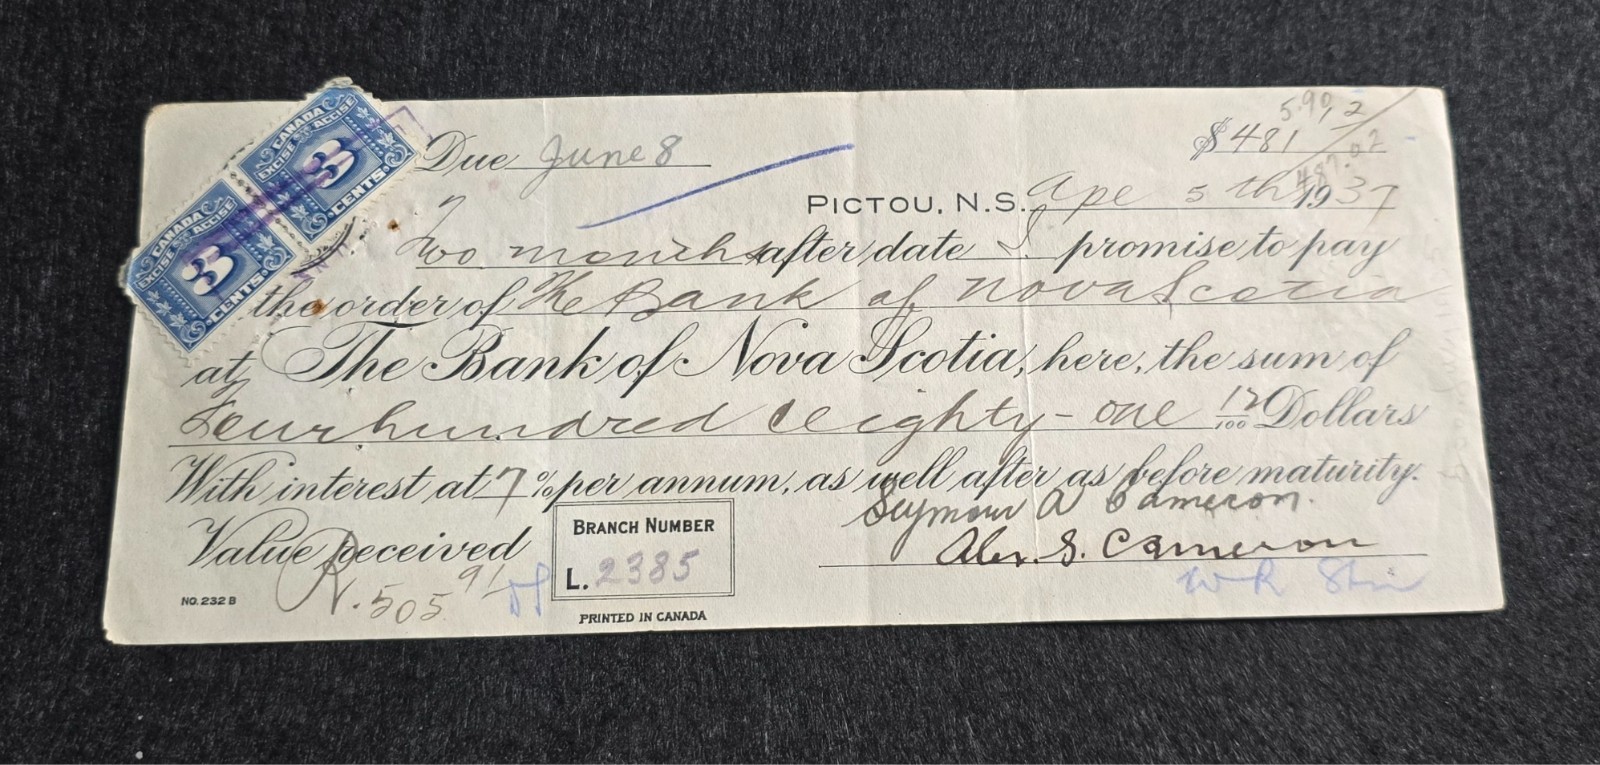 CANADA
EXCISE ACCISE
3
CENTS
CANADA
EXCISE ACCISE
3
CENTS
5.90
Due June 8
$481 12
487.02
PICTOU, N.S. Apr 5th 1937
Two months after date I promise to pay
the order of The Bank of Nova Scotia
at The Bank of Nova Scotia, here, the sum of
Four hundred Eighty-one 12/100 Dollars
With interest at 7 % per annum, as well after as before maturity.
Seymour A Cameron.
Value received
Alex. S. Cameron
BRANCH NUMBER
L. 2385
R. 505 91
NO. 232 B
PRINTED IN CANADA